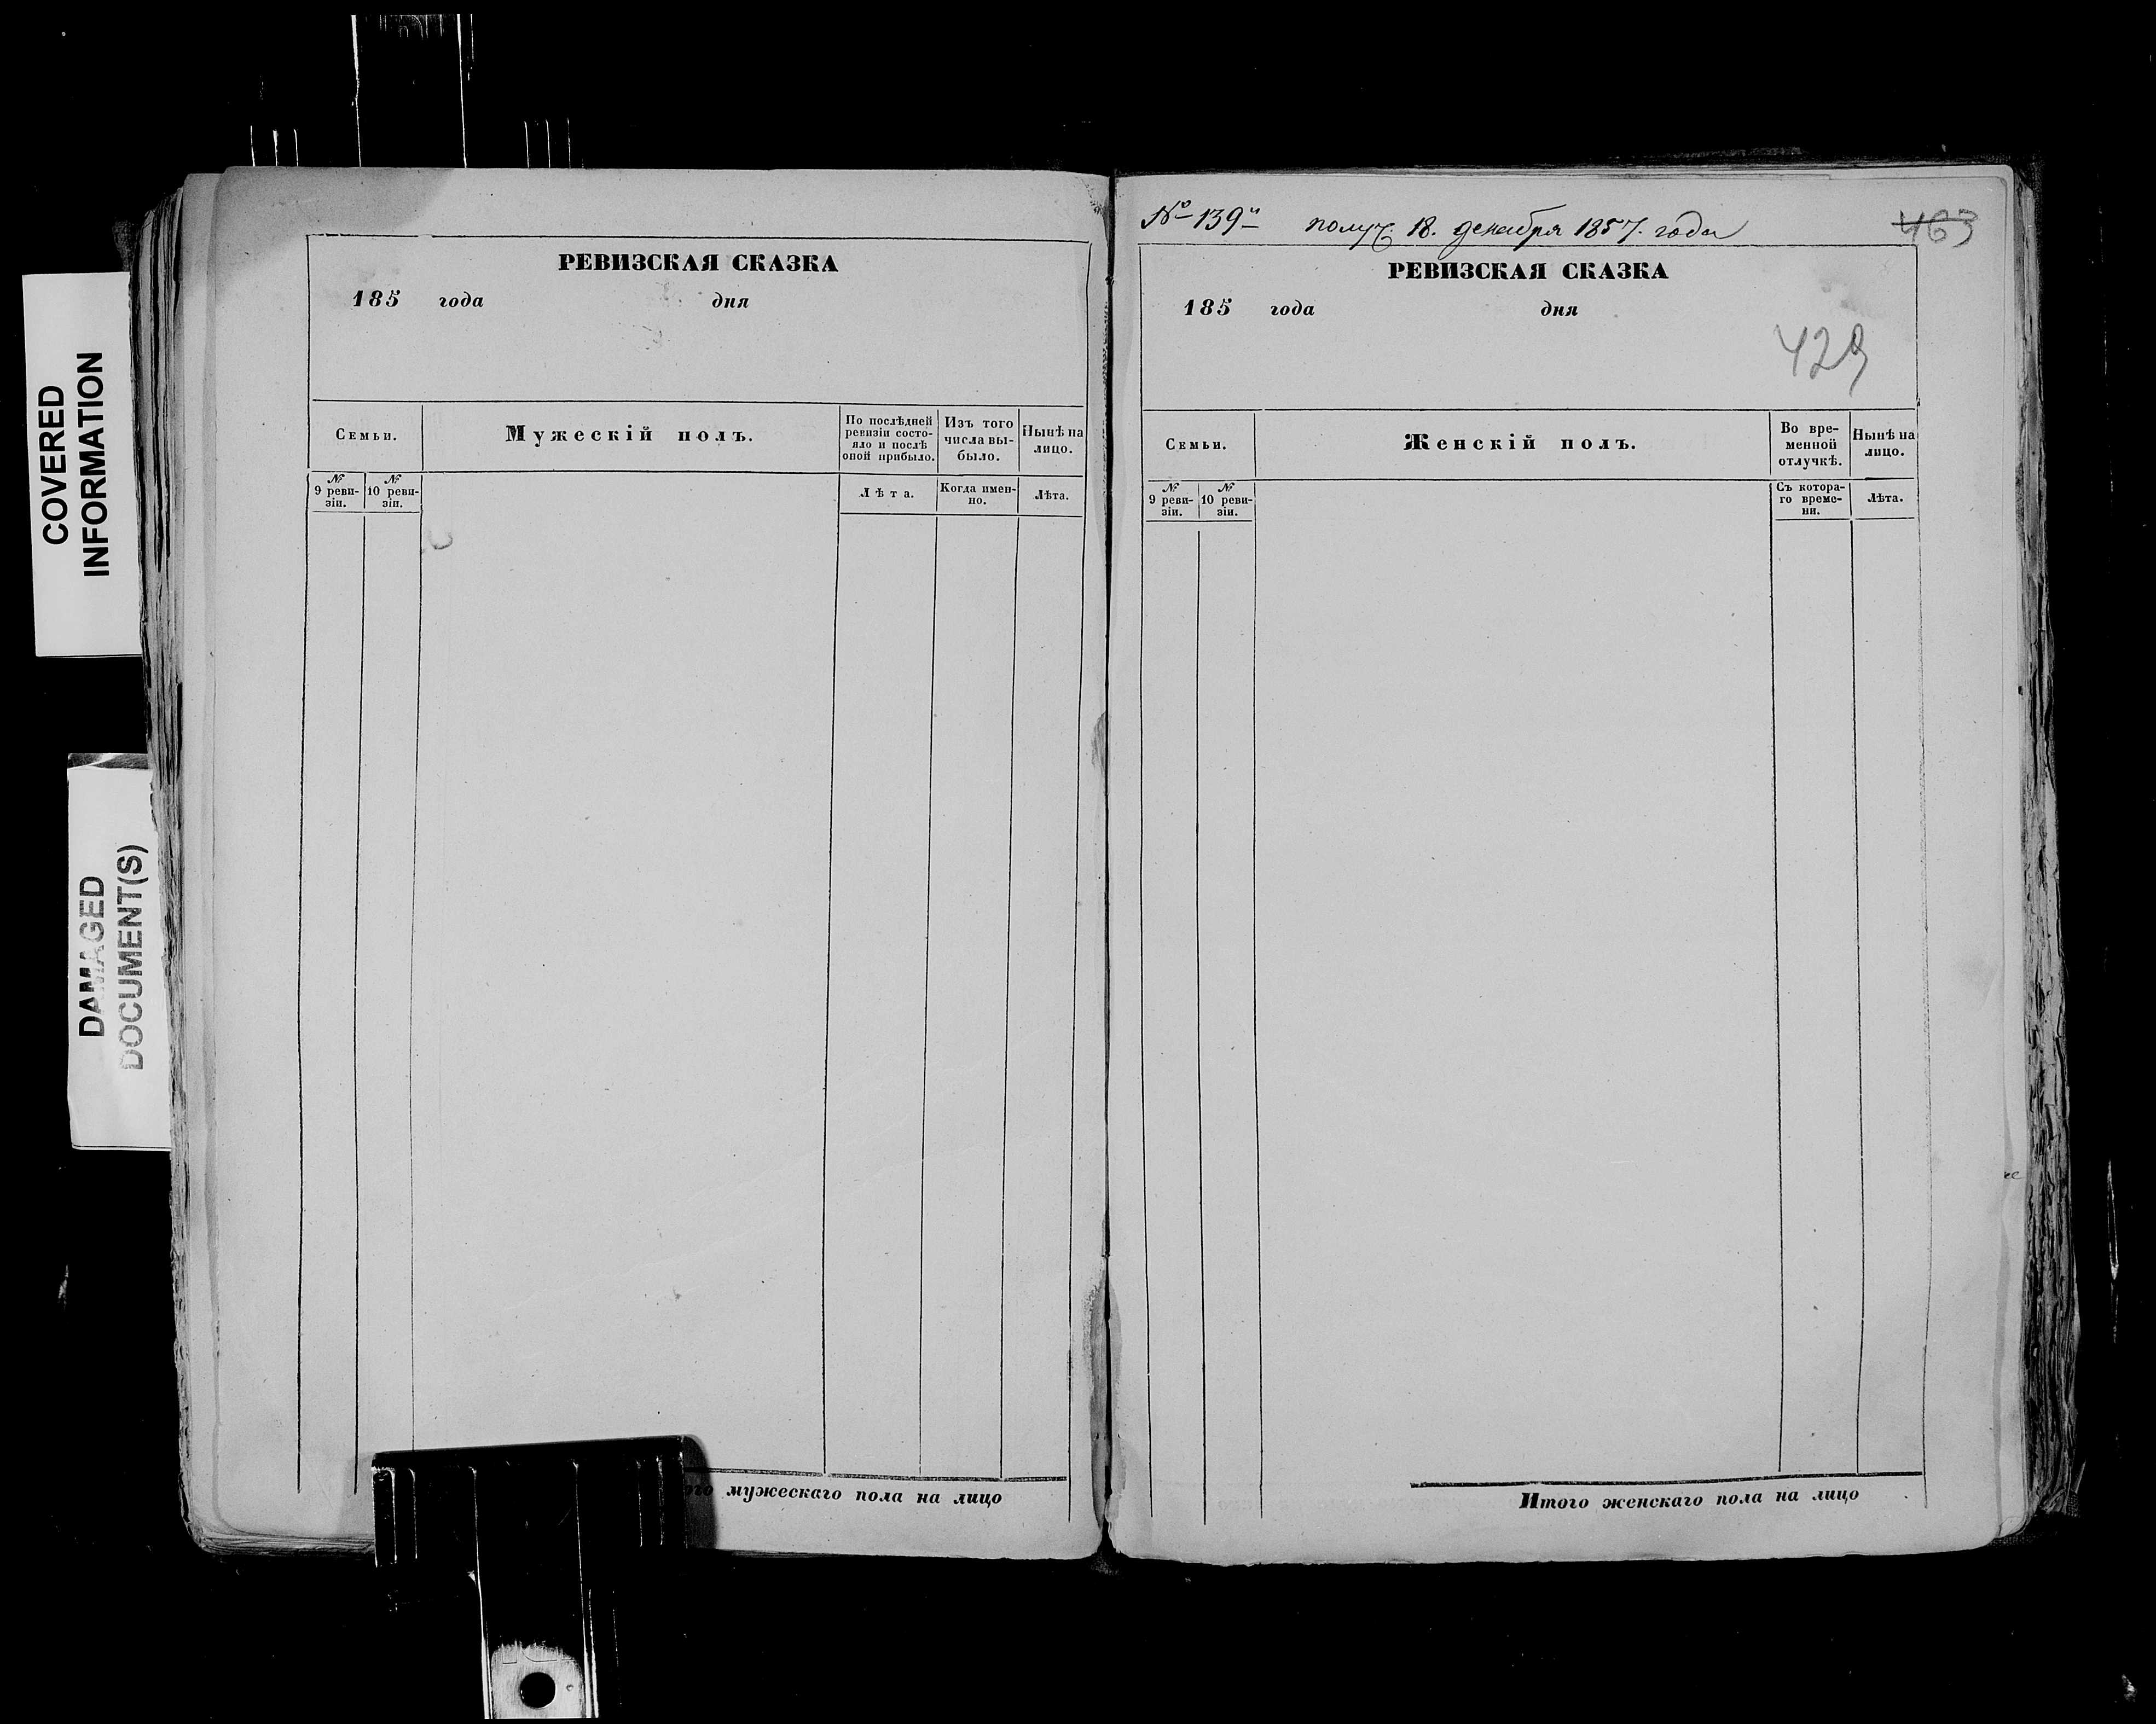 COVERED
INFORMATION
DAMAGED
DOCUMENT(S)
РЕВИЗСКАЯ СКАЗКА
185 года дня
Семьи.
Мужескій полъ.
По послѣдней
ревизіи состо-
яло и послѣ
оной прибыло.
Изъ того
числа вы-
было.
Нынѣ на
лицо.
№
9 реви-
зіи.
№
10 реви-
зіи.
Лѣта.
Когда имен-
но.
Лѣта.
мужескаго пола на лицо
№ 139й получ. 18. декабря 1857. года
463
РЕВИЗСКАЯ СКАЗКА
185 года дня
429
Семьи.
Женскій полъ.
Во вре-
менной
отлучкѣ.
Нынѣ на
лицо.
№
9 реви-
зіи.
№
10 реви-
зіи.
Съ котора-
го време-
ни.
Лѣта.
Итого женскаго пола на лицо